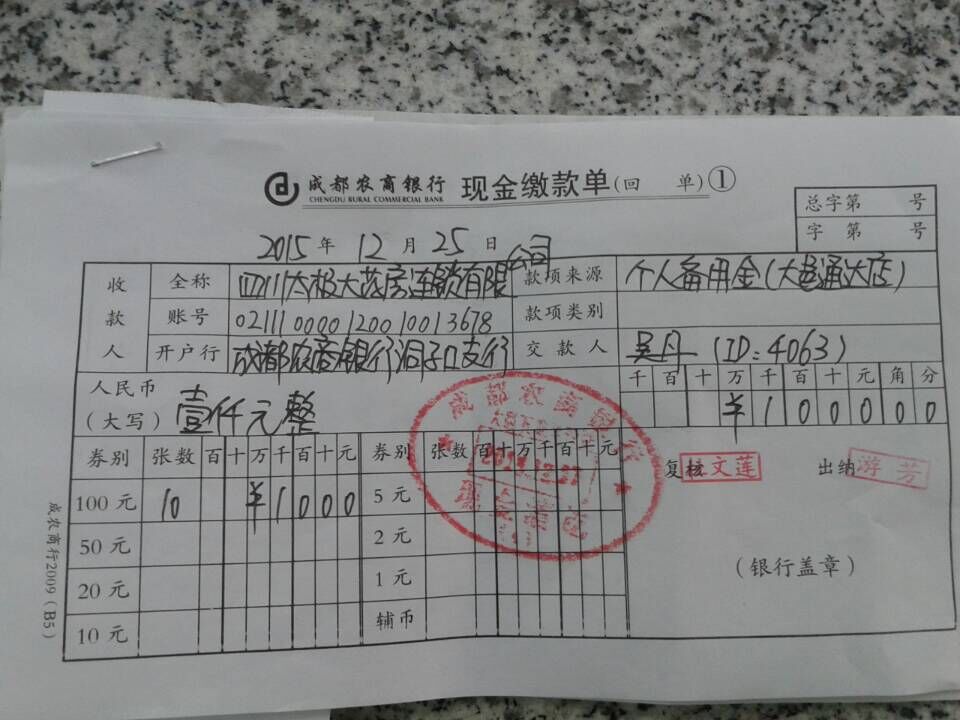 成都农商银行 现金缴款单(回 单)①
CHENGDU RURAL COMMERCIAL BANK
总字第 号
字 第 号
2015 年 12 月 25 日
收款人
全称 四川太极大药房连锁有限公司
款项来源 个人备用金(大邑通达店)
账号 021110000120010013678
款项类别
开户行 成都农商银行洞子口支行
交款人 吴丹 (ID:4063)
人民币
(大写) 壹仟元整
千 百 十 万 千 百 十 元 角 分
¥ 1 0 0 0 0 0
券别 张数 百 十 万 千 百 十 元 券别 张数 百 十 万 千 百 十 元
100 元 10 ¥ 1 0 0 0 5 元
50 元 2 元
20 元 1 元
10 元 辅币
复核 文莲 出纳 游芳
(银行盖章)
成都农商银行
成农商行2009(B5)